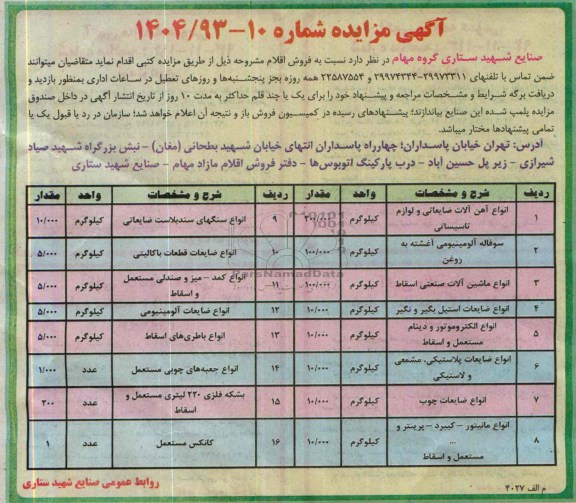 آگهی مزایده شماره ۱۰-۱۴۰۴/۹۳
صنایع شهید ستاری گروه مهام در نظر دارد نسبت به فروش اقلام مشروحه ذیل از طریق مزایده کتبی اقدام نماید متقاضیان میتوانند
ضمن تماس با تلفنهای ۲۹۹۷۳۳۱۱-۲۹۹۷۴۳۴۴ و ۲۲۵۸۷۵۵۴ همه روزه بجز پنجشنبه‌ها و روزهای تعطیل در ساعات اداری بمنظور بازدید و
دریافت برگه شرایط و مشخصات مراجعه و پیشنهاد خود را برای یک یا چند قلم حداکثر به مدت ۱۰ روز از تاریخ انتشار آگهی در داخل صندوق
مزایده پلمپ شده این صنایع بیاندازند؛ پیشنهادهای رسیده در کمیسیون فروش باز و نتیجه آن اعلام خواهد شد؛ سازمان در رد یا قبول یک یا
تمامی پیشنهادها مختار میباشد.
آدرس: تهران خیابان پاسداران؛ چهارراه پاسداران انتهای خیابان شهید بطحانی (مغان) - نبش بزرگراه شهید صیاد
شیرازی - زیر پل حسین آباد - درب پارکینگ اتوبوس‌ها - دفتر فروش اقلام مازاد مهام - صنایع شهید ستاری
ردیف شرح و مشخصات واحد مقدار ردیف شرح و مشخصات واحد مقدار
۱ انواع آهن آلات ضایعاتی و لوازم تاسیساتی کیلوگرم ۹ انواع سنگهای سندبلاست ضایعاتی کیلوگرم ۱۰/۰۰۰
۲ سوفاله آلومینیومی آغشته به روغن کیلوگرم ۱۰۰/۰۰۰ ۱۰ انواع ضایعات قطعات باکالیتی کیلوگرم ۵/۰۰۰
۳ انواع ماشین آلات صنعتی اسقاط کیلوگرم ۱۰۰/۰۰۰ ۱۱ انواع کمد - میز و صندلی مستعمل و اسقاط کیلوگرم ۵/۰۰۰
۴ انواع ضایعات استیل بگیر و نگیر کیلوگرم ۱۰/۰۰۰ ۱۲ انواع ضایعات آلومینیومی کیلوگرم ۵/۰۰۰
۵ انواع الکتروموتور و دینام مستعمل و اسقاط کیلوگرم ۱۰/۰۰۰ ۱۳ انواع باطری‌های اسقاط کیلوگرم ۵/۰۰۰
۶ انواع ضایعات پلاستیکی، مشمعی و لاستیکی کیلوگرم ۱۰/۰۰۰ ۱۴ انواع جعبه‌های چوبی مستعمل عدد ۱/۰۰۰
۷ انواع ضایعات چوب کیلوگرم ۱۰/۰۰۰ ۱۵ بشکه فلزی ۲۲۰ لیتری مستعمل و اسقاط عدد ۳۰۰
۸ انواع مانیتور - کیبرد - پرینتر و ... مستعمل و اسقاط کیلوگرم ۱۰/۰۰۰ ۱۶ کانکس مستعمل عدد ۱
م الف ۴۰۲۷
روابط عمومی صنایع شهید ستاری